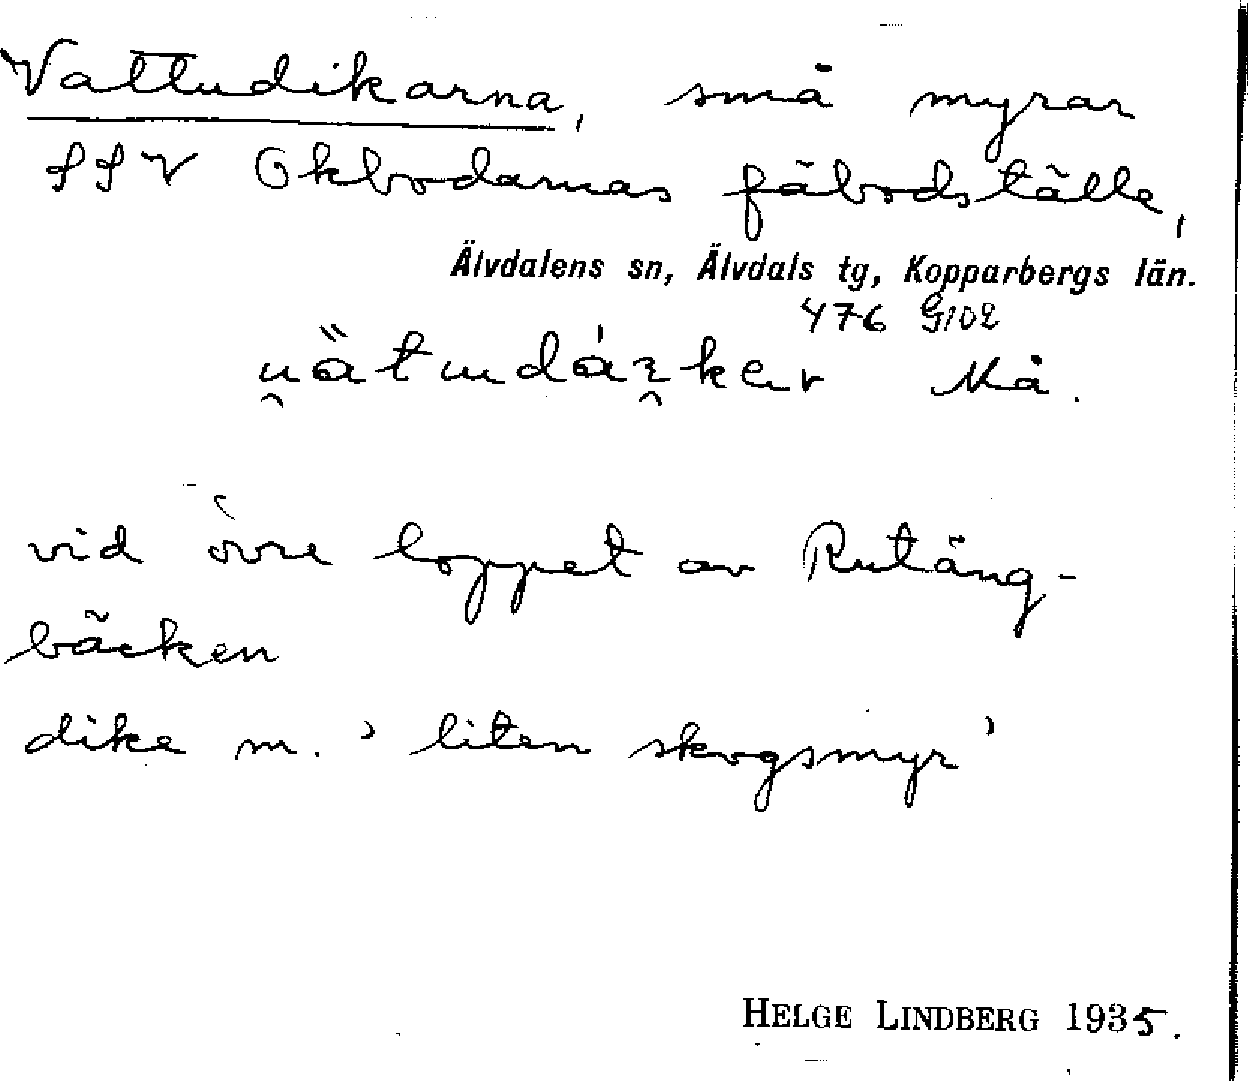 Vattudikarna, små myrar
SSV Okbodarnas fäbodställe,
Älvdalens sn, Älvdals tg, Kopparbergs län.
476 G102
Må.
vid övre loppet av Rutäng-
bäcken
dike m. ’liten skogsmyr’
HELGE LINDBERG 1935.